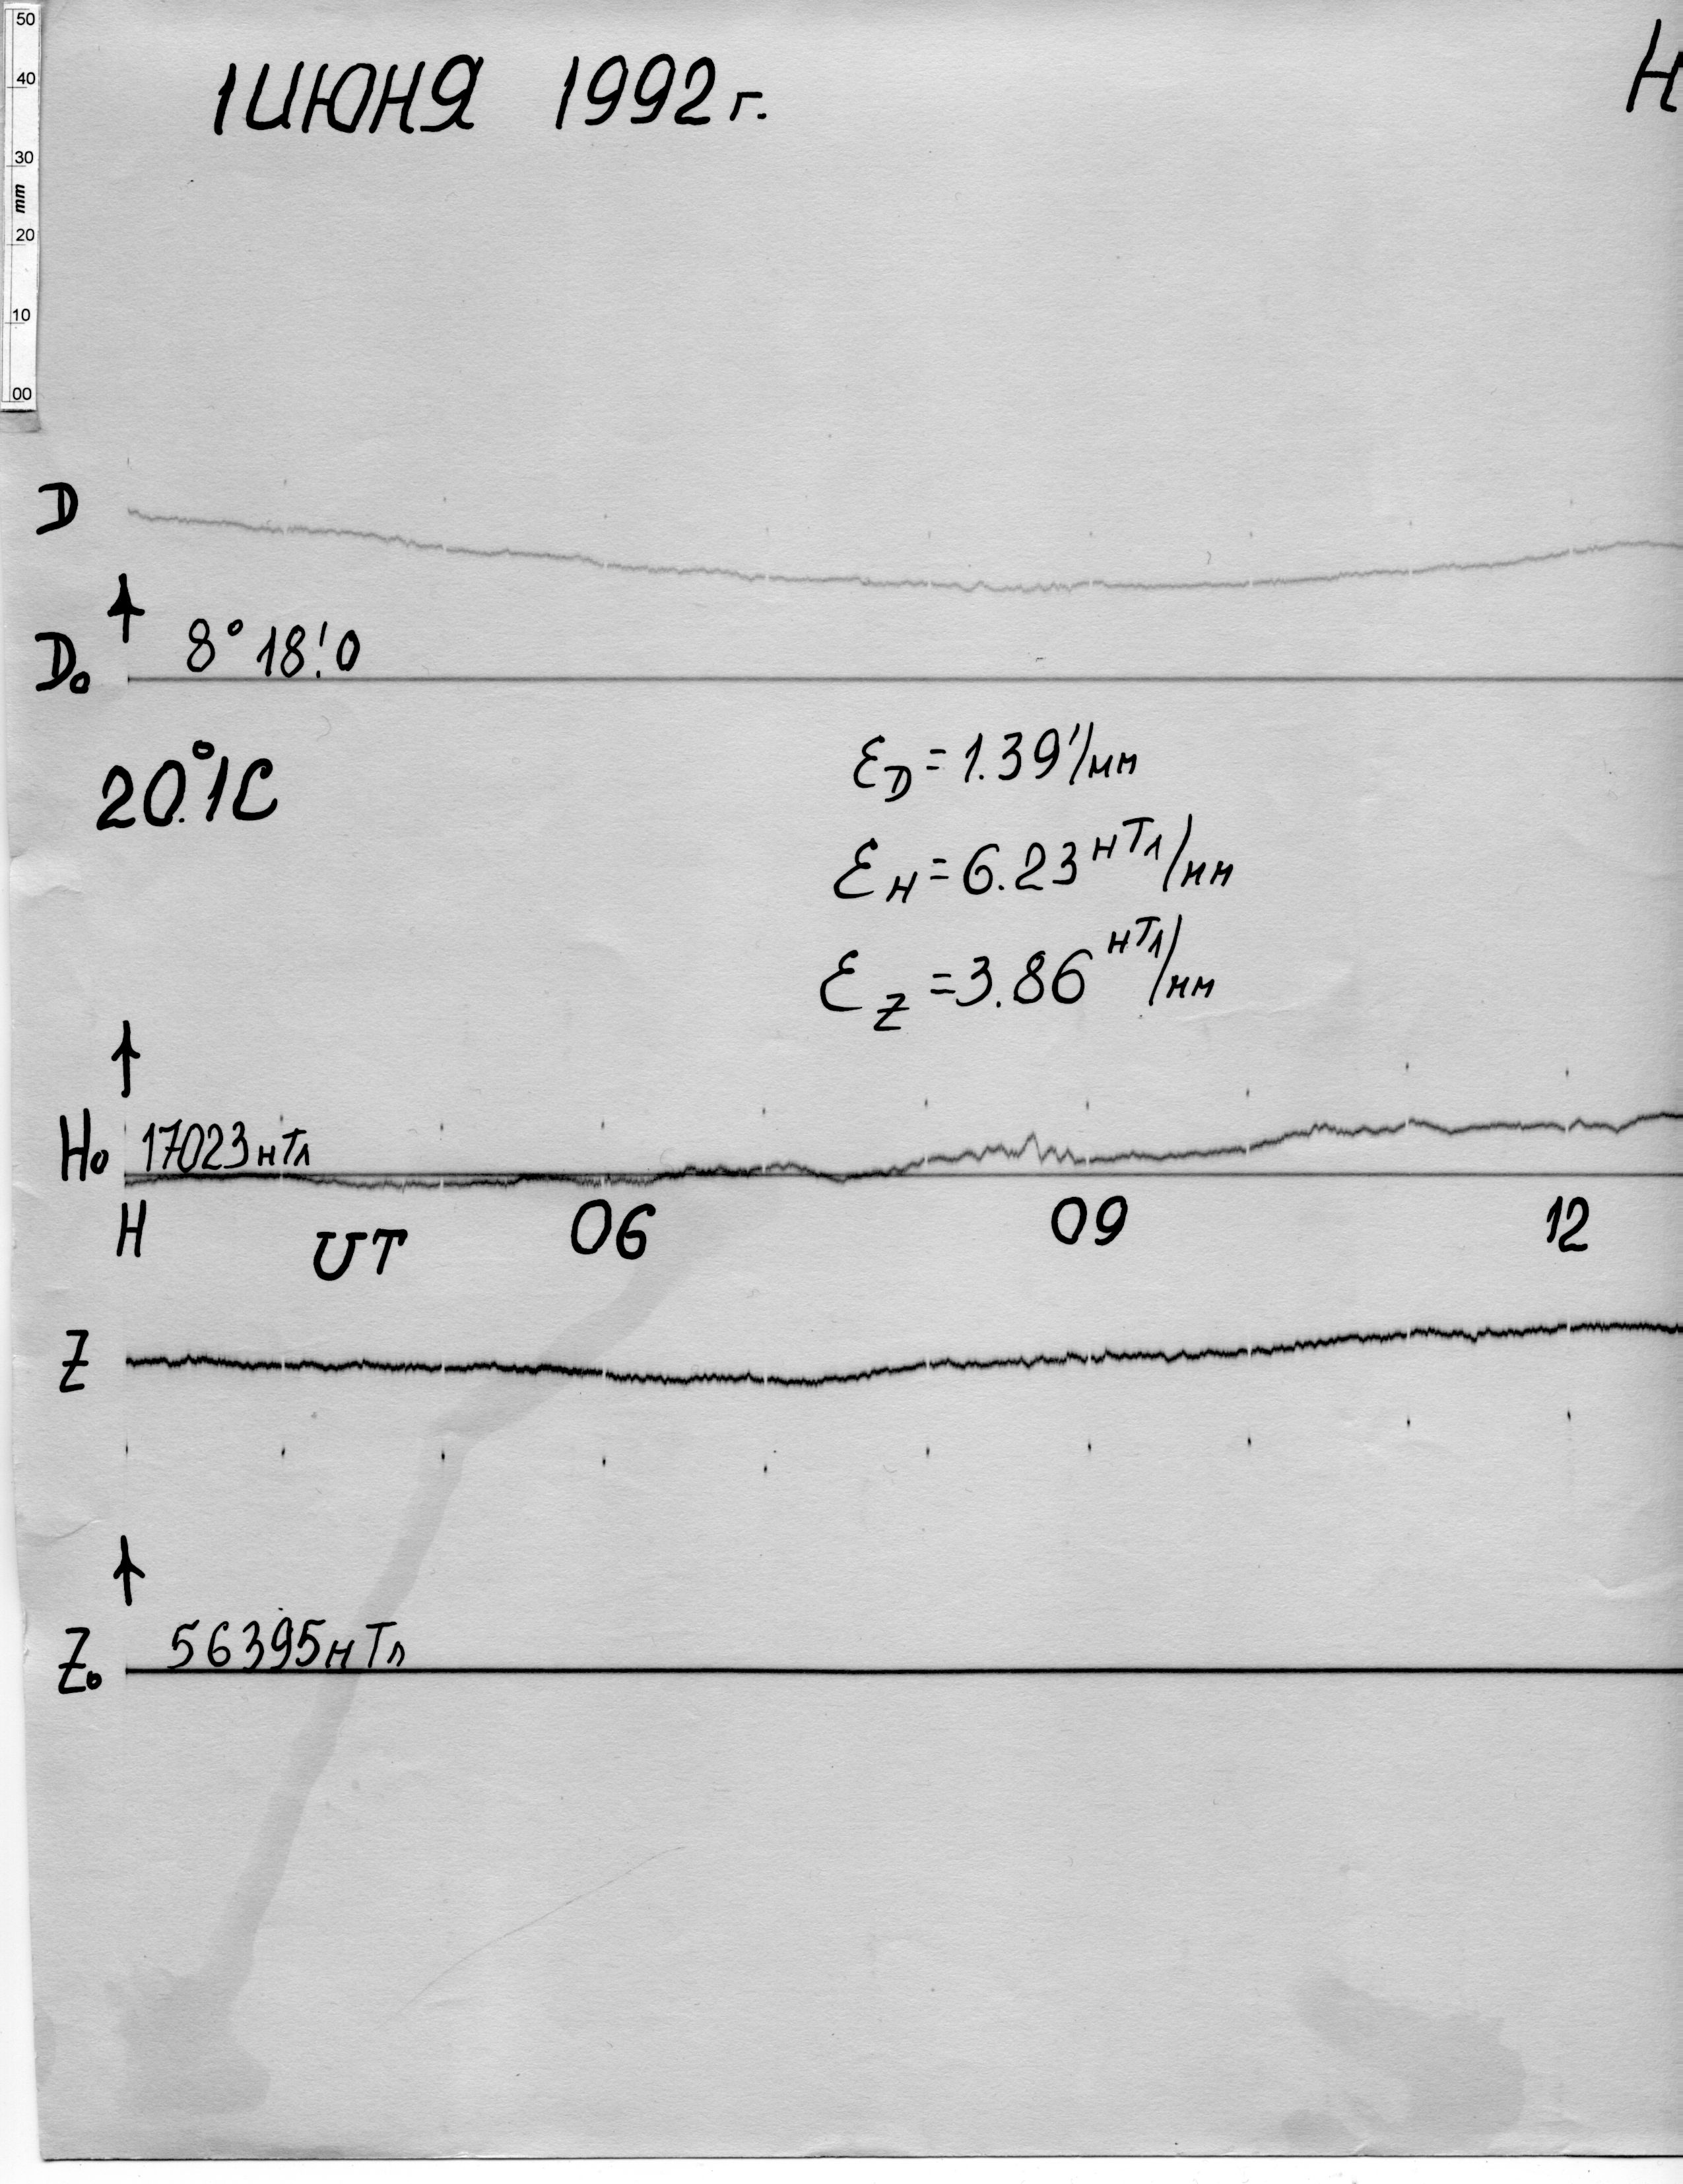 50
40
30
mm
20
10
00
1 ИЮНЯ 1992 г.
Н
D
D₀ 8° 18!0
20.°1C
ℰD = 1.39'/мм
ℰH = 6.23 нТл/мм
ℰZ = 3.86 нТл/мм
H₀ 17023 нТл
H UT 06 09 12
Z
Z₀ 56395 нТл